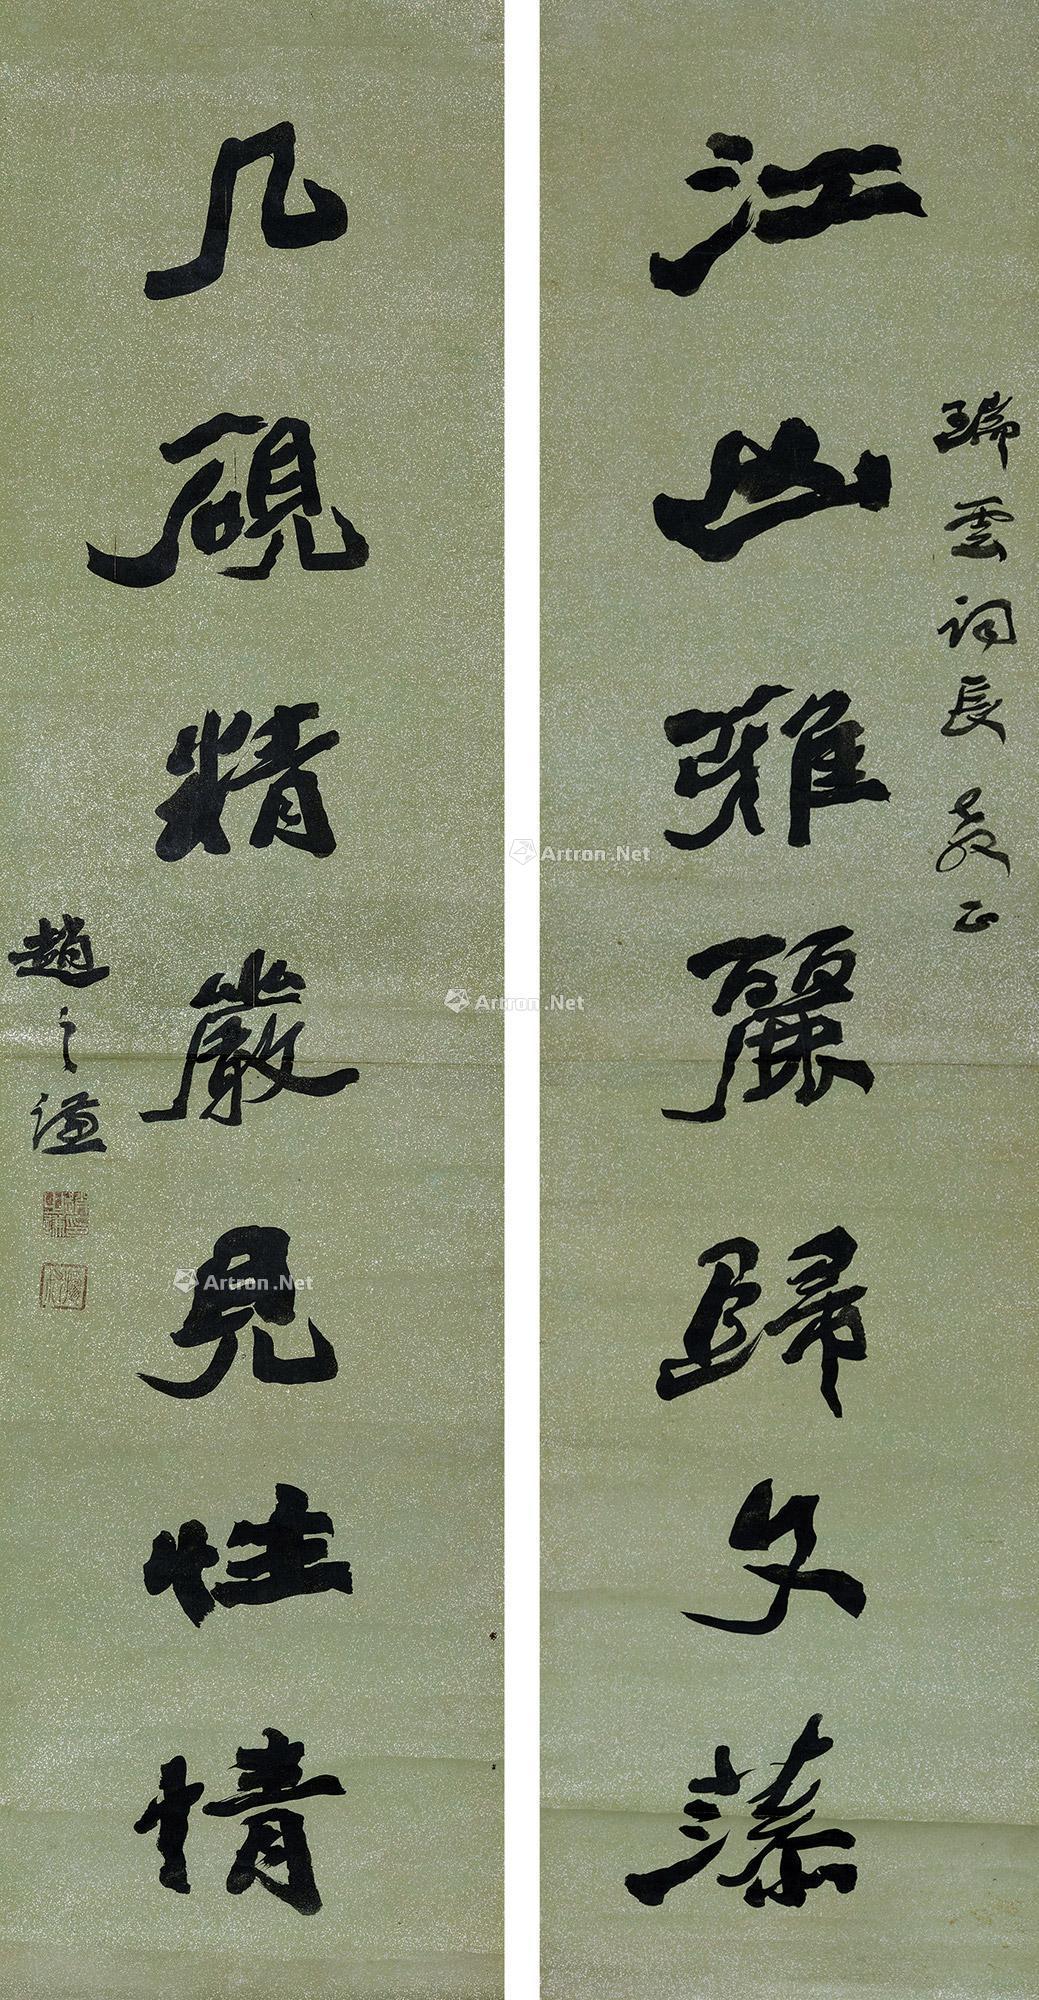 江山雅麗歸文藻
瑞雲詞長教正
几硯精嚴見性情
趙之謙
Artron.Net
Artron.Net
Artron.Net